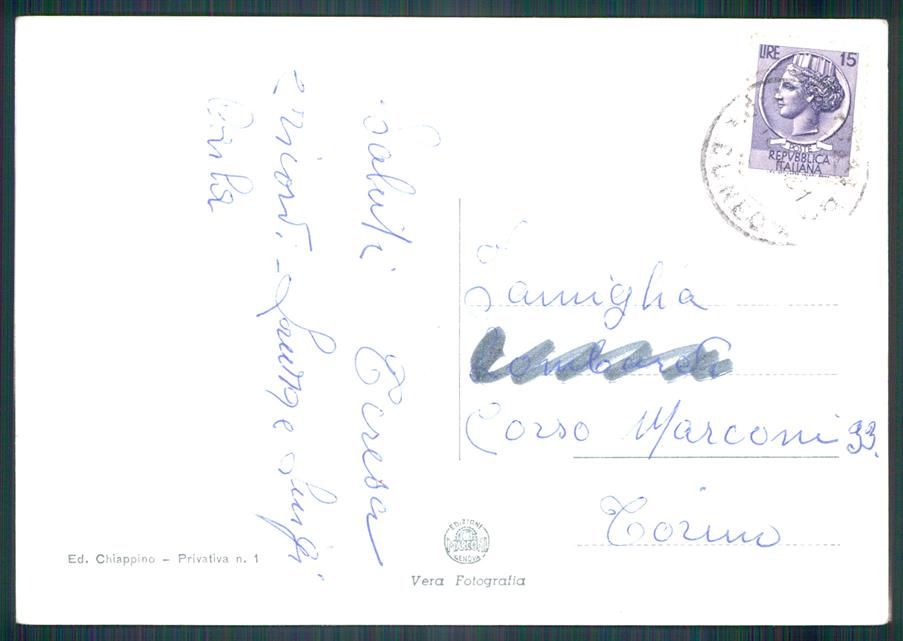 Saluti Teresa
e ricordi - Laura e Luigi
LIRE 15
POSTE
REPVBBLICA
ITALIANA
Famiglia
Corso Marconi 33.
Torino
EDIZIONI
GENOVA
Ed. Chiappino – Privativa n. 1
Vera Fotografia